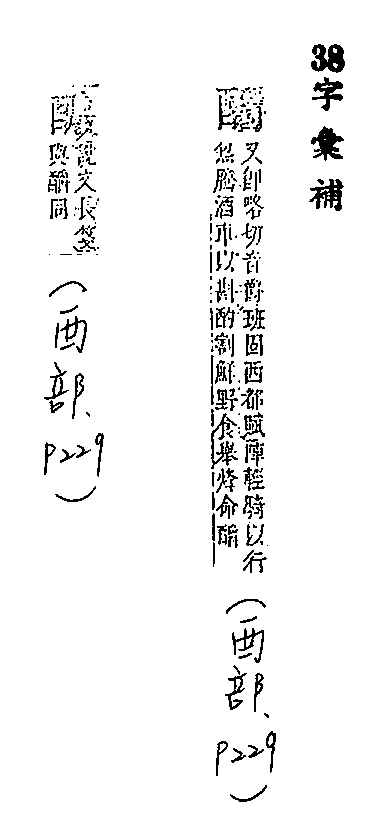 38字彙補
又卽略切音爵班固西都賦陣輕騎以行
炰騰酒車以斟酌割鮮野食舉烽命釂
(酉部、P229)
說文長箋
與釂同
(酉部、P229)